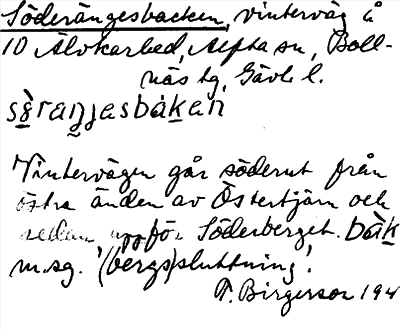 Söderängesbacken, vinterväg å
10 Älvkarhed, Alfta sn, Boll-
näs tg, Gävle l.
Vintervägen går söderut från
östra änden av Östertjärn och
sedan uppför Söderberget. bàk
m. sg. '(bergs)sluttning'.
F. Birgerson 194